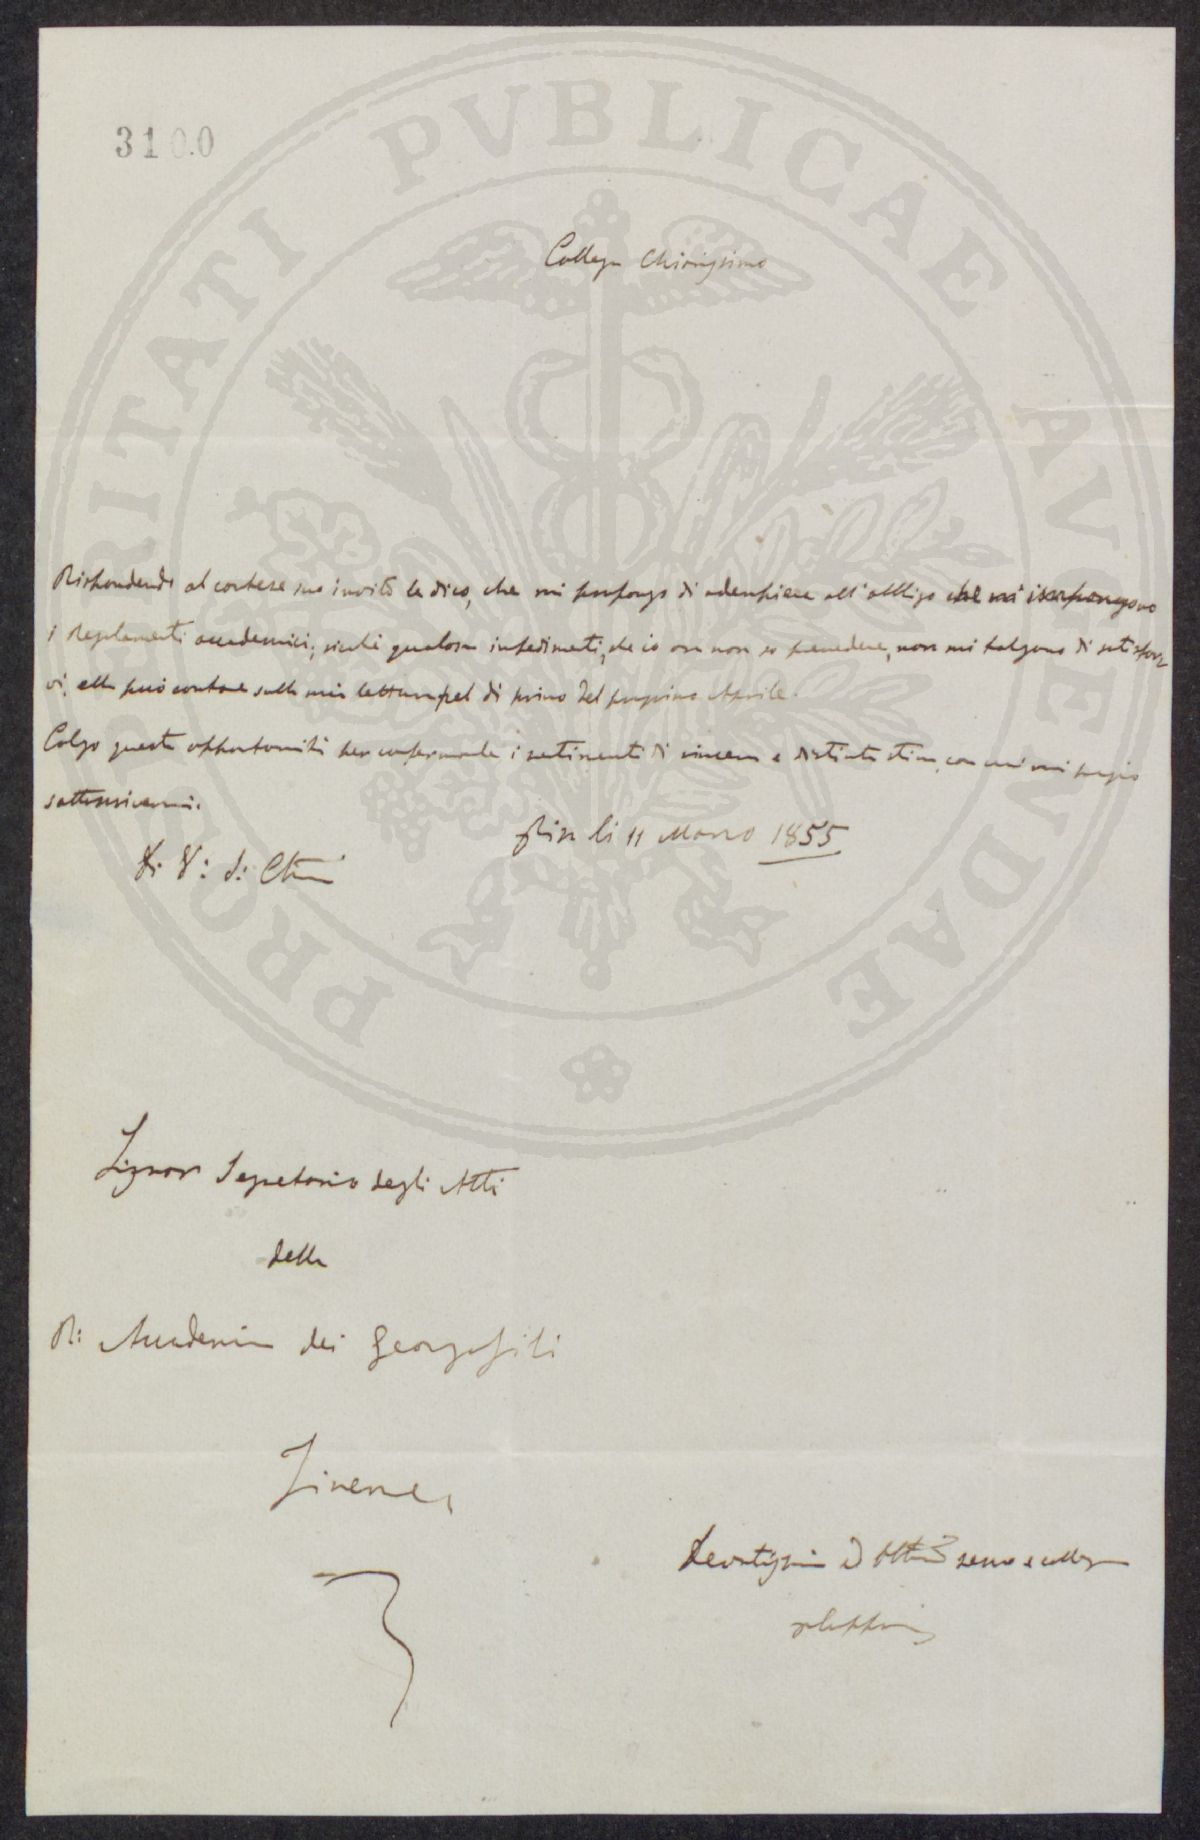 PROSPERITATI PVBLICAE AVGENDAE
3100
Collega Chiarissimo
Rispondendo al cortese suo invito le dico, che mi propongo di adempiere all'obbligo che mi impongono
i Regolamenti accademici; sicché qualora impedimenti, che io ora non so prevedere, non mi tolgano di sodisfar
vi, ella può contare sulla mia lettura pel dì primo del prossimo Aprile.
Colgo questa opportunità per confermarle i sentimenti di sincera e distinta stima, con cui mi pregio
sottoscrivermi.
Pisa li 11 Marzo 1855
Di V: S: Ch
Signor Segretario degli Atti
della
R: Accademia dei Georgofili
Firenze
Devotissimo ed servo e collega